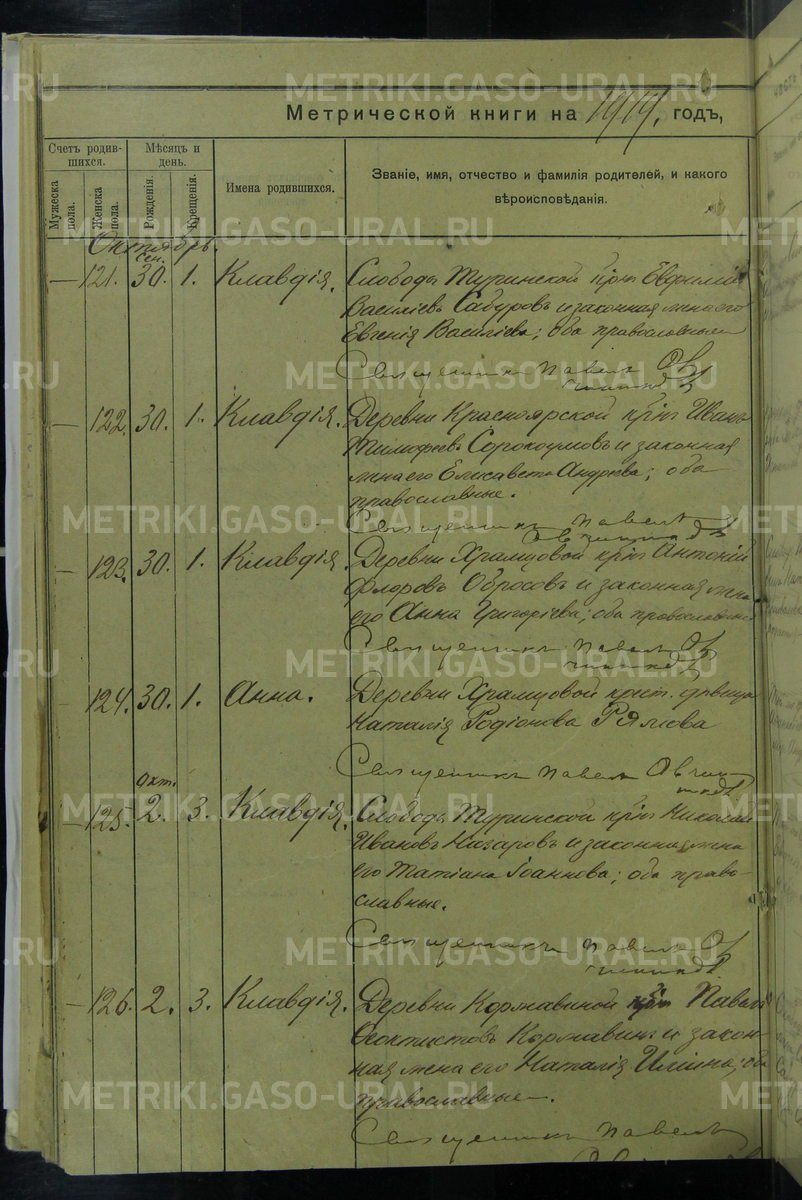 Метрической книги на 1919, годъ,
Счетъ родив-
шихся.
Мѣсяцъ и
день.
Имена родившихся.
Званіе, имя, отчество и фамилія родителей, и какого
вѣроисповѣданія.
Мужеска
пола.
Женска
пола.
Рожденія.
Крещенія.
Октябрь.
сен.
— 121. 30. 1. Клавдія. Слободы Туринской крн Евфимій
Василіевъ Сабуровъ и законная жена его
Евгенія Василіева; оба православные
Священникъ Павелъ
— 122. 30. 1. Клавдія. Деревни Красноярской крн Иванъ
Тимофеевъ Сорокоумовъ и законная
жена его Елисавета Андреева; оба
православные.
Священникъ Павелъ
— 123. 30. 1. Клавдія. Деревни Храмцовой крн Антоній
Флоровъ Обросовъ и законная жена
его Анна Григоріева; оба православные
Священникъ Павелъ
— 124. 30. 1. Анна. Деревни Храмцовой крест. дѣвица
Наталія Родіонова
Священникъ Павелъ
окт.
— 125. 2. 3. Клавдія. Слободы Туринской крн Николай
Ивановъ Назаровъ и законная жена
его Татіана Іоаннова; оба право-
славные.
Священникъ Павелъ
— 126. 2. 3. Клавдія. Деревни Коржавиной крн Павелъ
Феоктистовъ Коржавинъ и закон-
ная жена его Наталія Иліина; оба
православные.
Священникъ Павелъ
METRIKI.GASO-URAL.RU